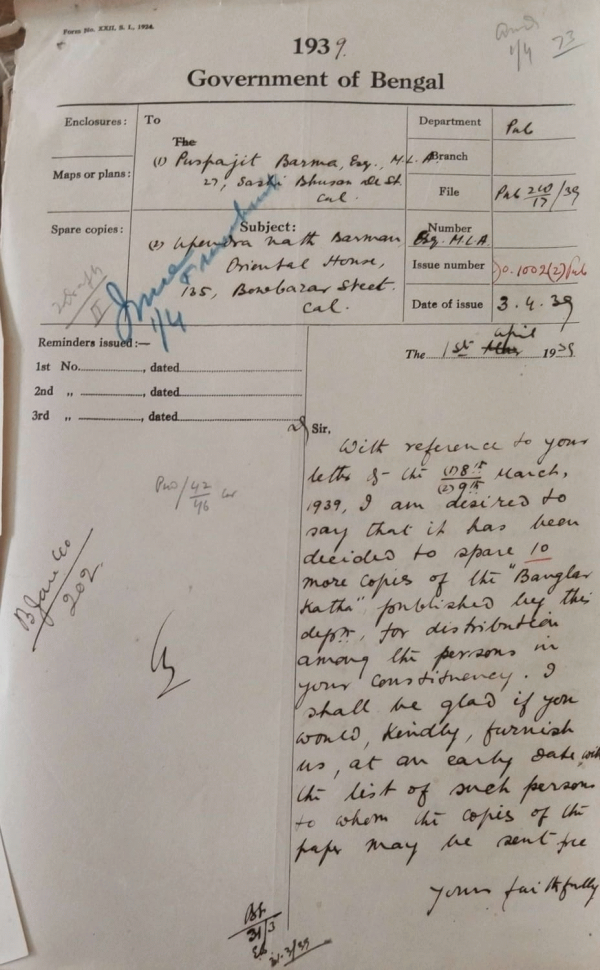 Form No. XXII, S. I., 1934.
1/4 23
1939.
Government of Bengal
Enclosures:
To
The
(1) Puspajit Barma, Esq., M.L.A.
27, Sashi Bhusan De St.
Cal.
Maps or plans:
Spare copies:
Subject:
(2) Upendra Nath Barman Esq. M.L.A.
Oriental House,
135, Bowbazar Street.
Cal.
1/4
Department Pub
Branch
File Pub 210/17/39
Number
Issue number No. 1002(2) Pub
Date of issue 3.4.39
Reminders issued:—
1st No., dated
2nd „ , dated
3rd „ , dated
The 1st April 1939
Sir,
With reference to your
letter of the (1) 8th (2) 9th March,
1939, I am desired to
say that it has been
decided to spare 10
more copies of the "Banglar
Katha" published by this
deptt, for distribution
among the persons in
your constituency. I
shall be glad if you
would, kindly, furnish
us, at an early date, with
the list of such persons
to whom the copies of the
paper may be sent free
Yours faithfully
42/46
202
31/3
31.3/39